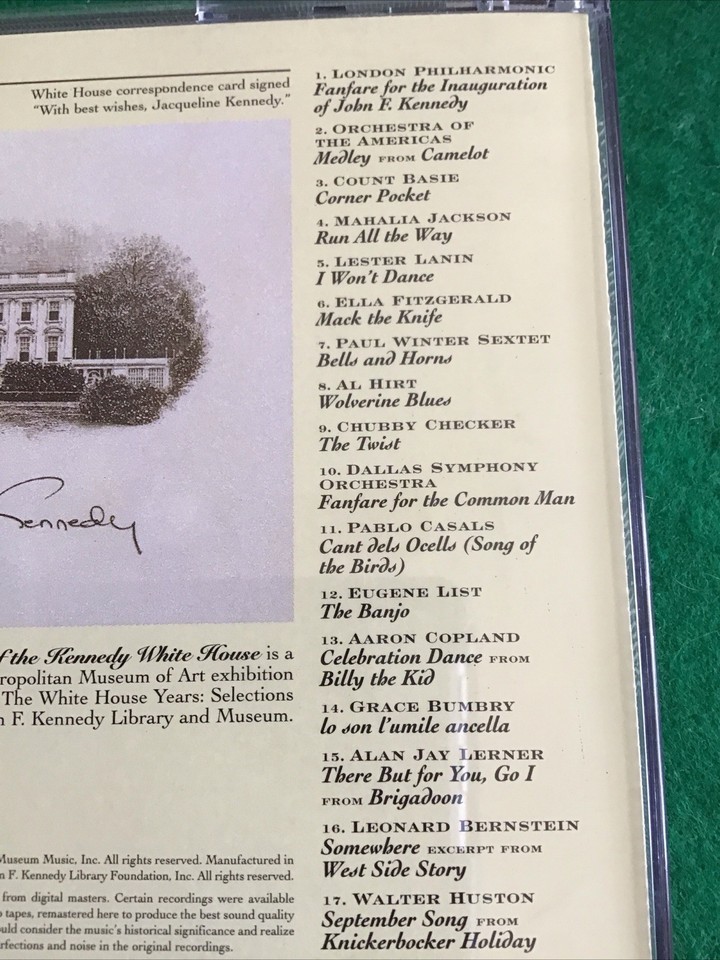 White House correspondence card signed
“With best wishes, Jacqueline Kennedy.”
Kennedy
of the Kennedy White House is a
Metropolitan Museum of Art exhibition
The White House Years: Selections
F. Kennedy Library and Museum.
Museum Music, Inc. All rights reserved. Manufactured in
F. Kennedy Library Foundation, Inc. All rights reserved.
from digital masters. Certain recordings were available
tapes, remastered here to produce the best sound quality
should consider the music's historical significance and realize
imperfections and noise in the original recordings.
1. LONDON PHILHARMONIC
Fanfare for the Inauguration
of John F. Kennedy
2. ORCHESTRA OF
THE AMERICAS
Medley FROM Camelot
3. COUNT BASIE
Corner Pocket
4. MAHALIA JACKSON
Run All the Way
5. LESTER LANIN
I Won't Dance
6. ELLA FITZGERALD
Mack the Knife
7. PAUL WINTER SEXTET
Bells and Horns
8. AL HIRT
Wolverine Blues
9. CHUBBY CHECKER
The Twist
10. DALLAS SYMPHONY
ORCHESTRA
Fanfare for the Common Man
11. PABLO CASALS
Cant dels Ocells (Song of
the Birds)
12. EUGENE LIST
The Banjo
13. AARON COPLAND
Celebration Dance FROM
Billy the Kid
14. GRACE BUMBRY
lo son l'umile ancella
15. ALAN JAY LERNER
There But for You, Go I
FROM Brigadoon
16. LEONARD BERNSTEIN
Somewhere EXCERPT FROM
West Side Story
17. WALTER HUSTON
September Song FROM
Knickerbocker Holiday